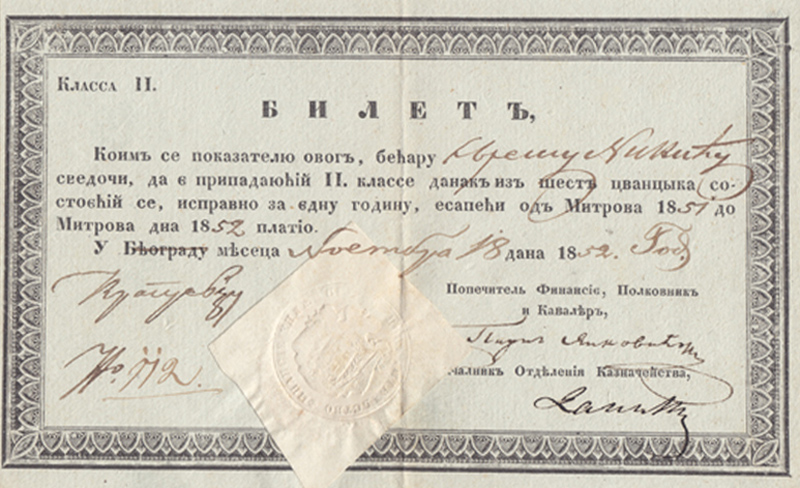 Класса II.
БИЛЕТЪ,
Коимъ се показателю овогъ, бећару Никићу
сведочи, да є припадаюћій II. классе данакъ изъ шестъ цванцыка со-
стоећій се, исправно за єдну годину, есапећи одъ Митрова 1851 до
Митрова дна 1852 платіо.
У Бѣограду мѣсеца Ноембра 18 дана 1852. Год.
Крагуевцу
Попечитель Финансіє, Полковник
и Кавалѣръ,
No. 712.
Паунъ Янковићъ
чалникъ Отдѣленія Казначейства,